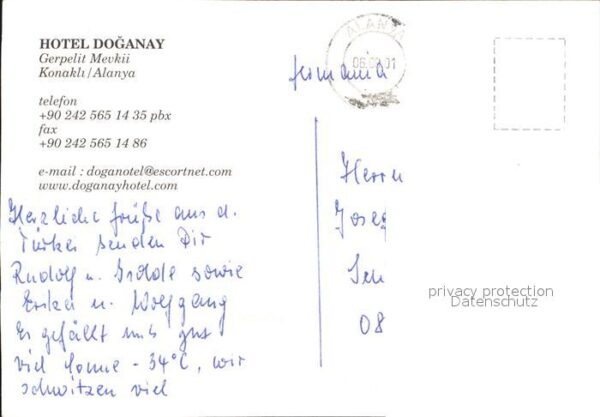 HOTEL DOĞANAY
Gerpelit Mevkii
Konaklı/Alanya
telefon
+90 242 565 14 35 pbx
fax
+90 242 565 14 86
e-mail : doganotel@escortnet.com
www.doganayhotel.com
ALANYA
Germania
Herrn
Josef
08
privacy protection
Datenschutz
Herzliche Grüße aus d.
Türkei senden Dir
Rudolf u. sowie
Erika u. Wolfgang
Es gefällt uns gut
viel Sonne - 34°C, wir
schwitzen viel